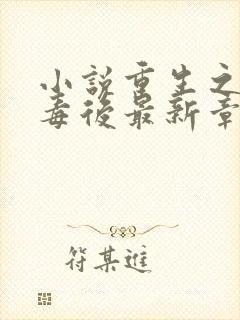 小說重生之
毒後最新章
符某進